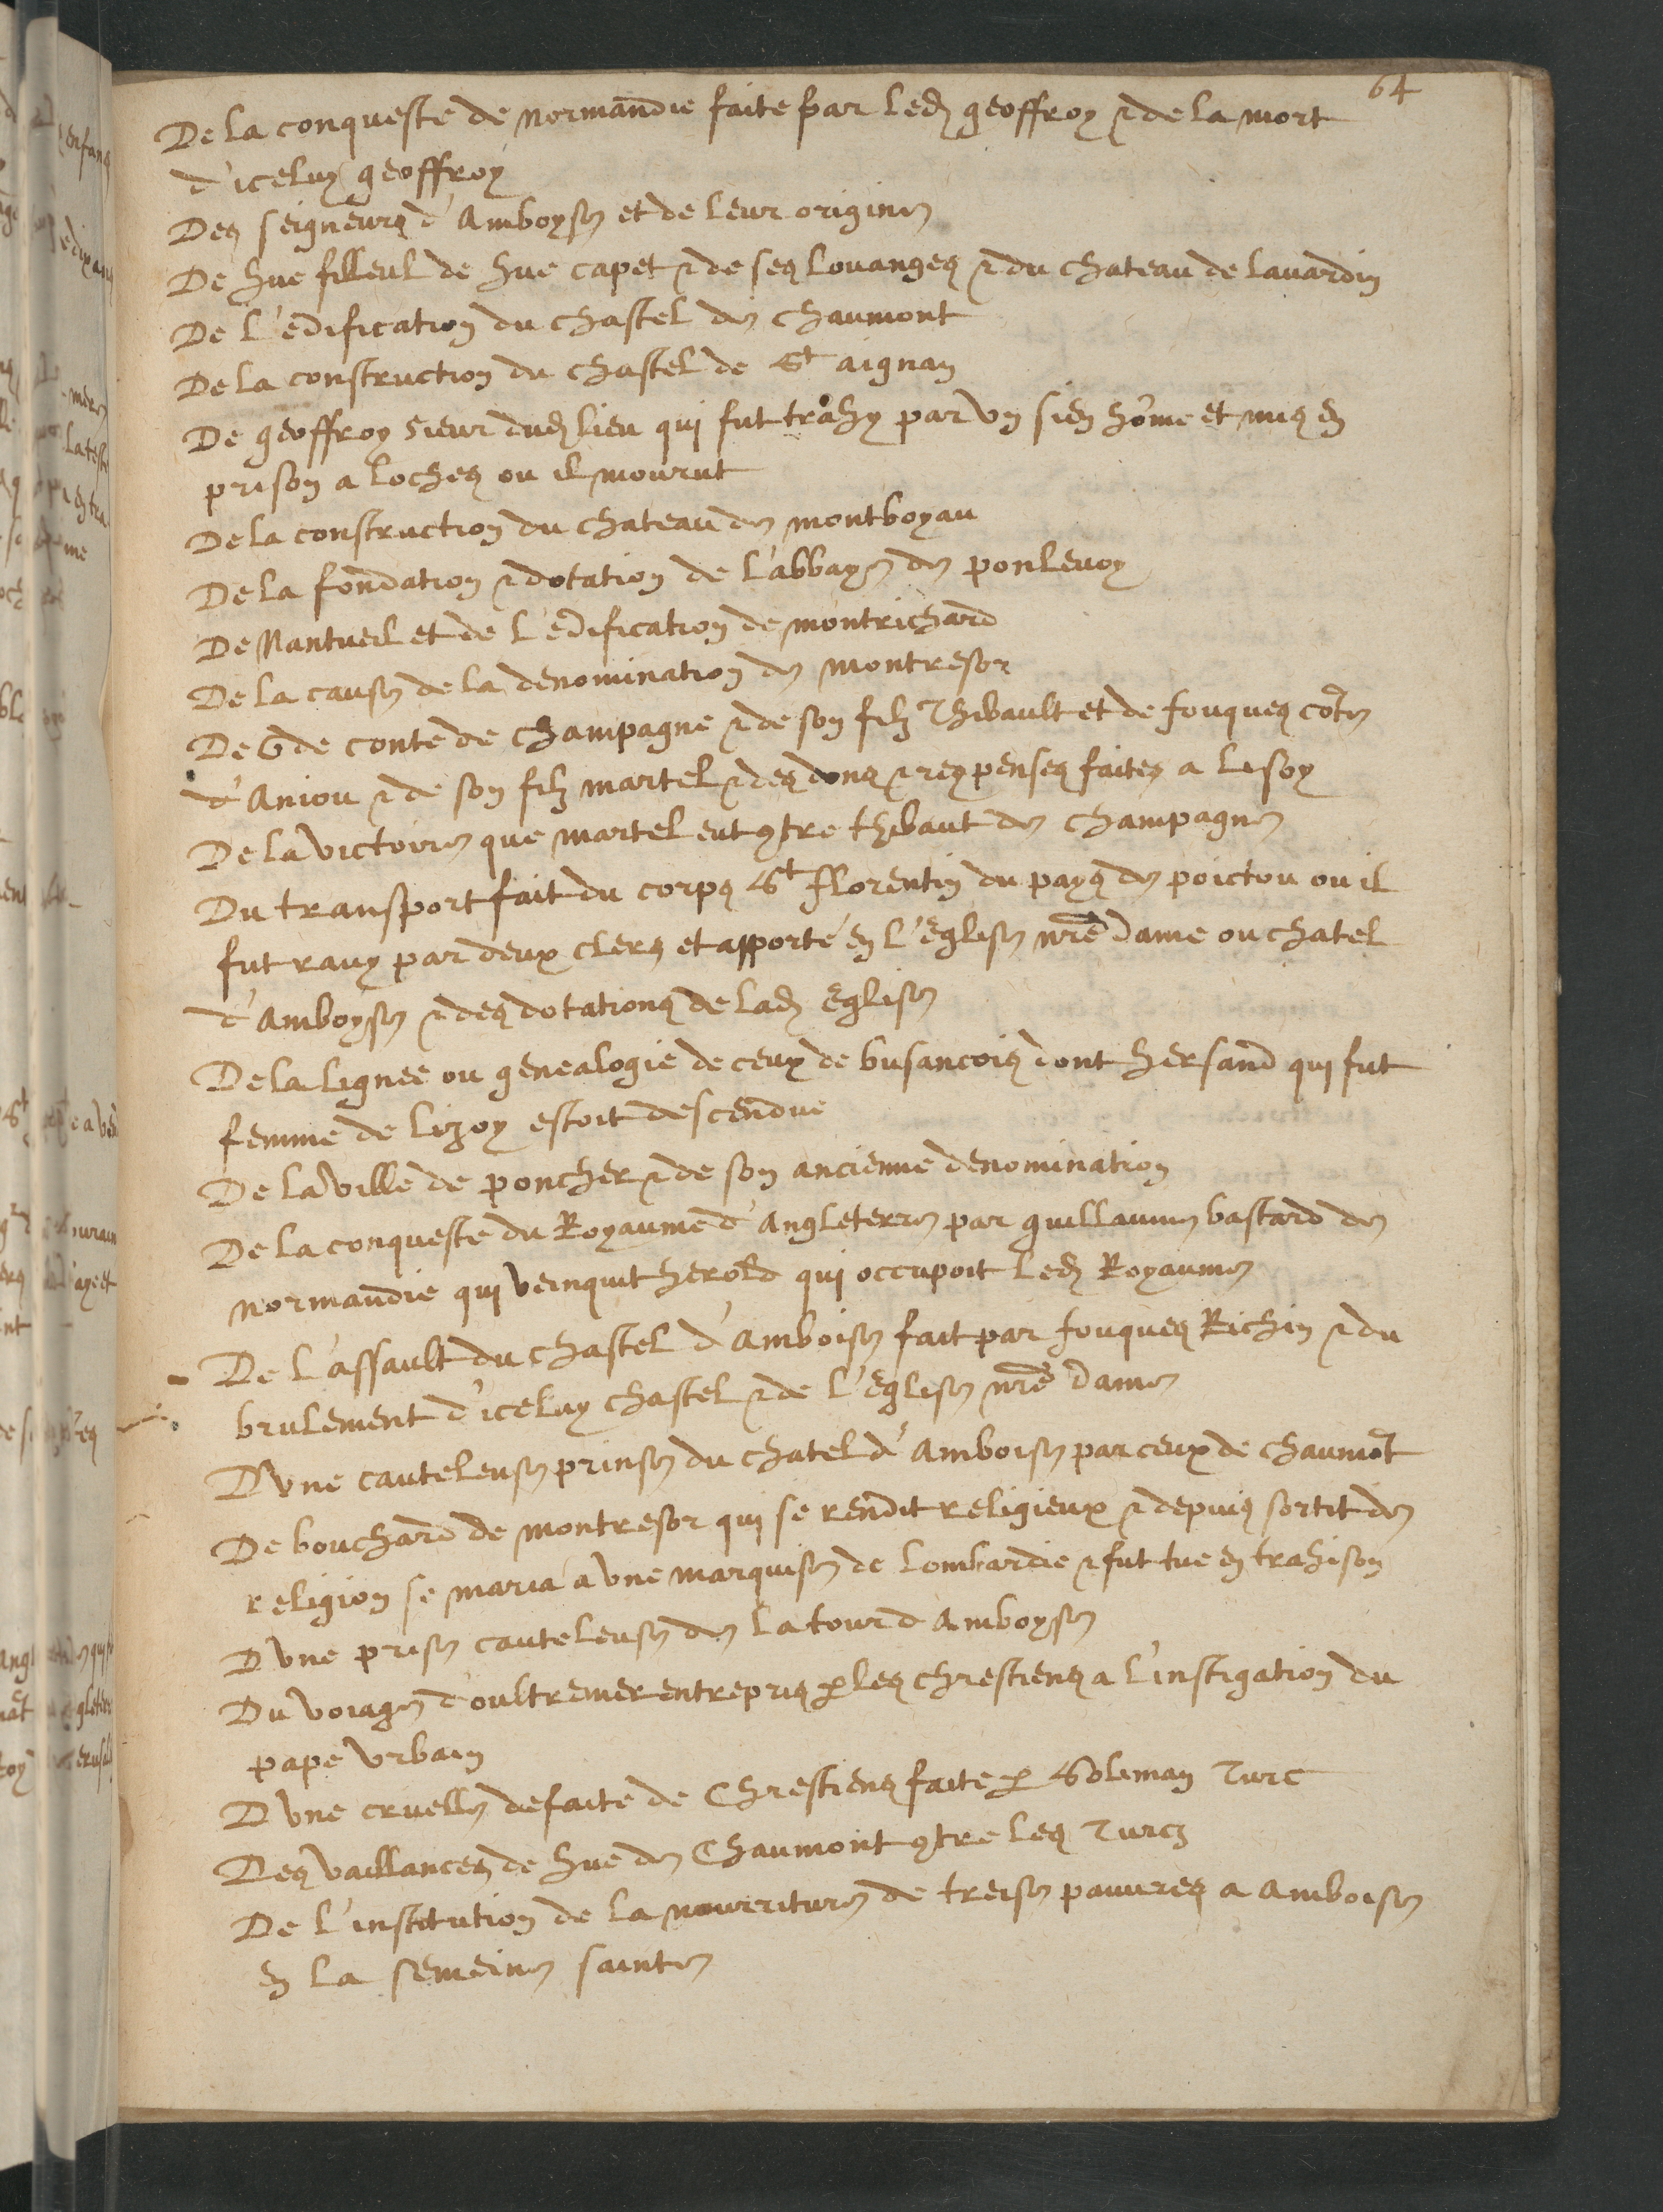 64
De la conqueste de normandie faite par led geoffroy & de la mort
d'iceluy geoffroy
Des seigneurs d'Amboyse et de leur origine
De hue filleul de hue capet & de ses louanges & du chateau de lavardin
De l'edification du chastel de chaumont
De la construction du chastel de St aignan
De geoffroy sieur dud lieu qui fut trahy par vn sien hôme et mis en
prison a loches ou il mourut
De la construction du chateau de montboyau
De la fondation & dotation de l'abbaye de ponlevoy
De Nantueil et de l'edification de montrichard
De la cause de la denomination de montresor
De Ode conte de champagne & de son filz Thibault et de fouques côte
d'Aniou & de son filz martel & des dons & rexpenses faites a lisoy
De la victoire que martel eut 9tre thibaut de champagne
Du transport fait du corps St florentin du pays de poictou ou il
fut rauy par deux clers et apporté en l'Eglise nrē Dame ou chatel
d'Amboyse & des dotations de lad Eglise
De la lignee ou genealogie de ceux de busancois dont hersand qui fut
femme de lizoy estoit descendue
De la ville de poncher & de son ancienne denomination
De la conqueste du Royaume d'Angleterre par guillaume bastard de
normandie qui veinquit herold qui occupoit led Royaume
De l'assault du chastel d'Amboise fait par fouques Richin & du
brulement d'iceluy chastel & de l'Eglise nrē Dame
D'vne cauteleuse prinse du chatel d'Amboise par ceux de chaumôt
De bouchard de montresor qui se rendit religieux & depuis sortit de
religion se maria a vne marquise de lombardie & fut tue en trahison
D'vne prise cauteleuse de la tour d'Amboyse
Du voiage d'oultremer entrepris p les chrestiens a l'instigation du
pape Vrbain
D'vne cruelle defaite de Chrestiens faite p Soliman Turc
Des vaillances de hue de Chaumont 9tre les Turcz
De l'institution de la nourriture de treise pauures a Amboise
en la semeine sainte